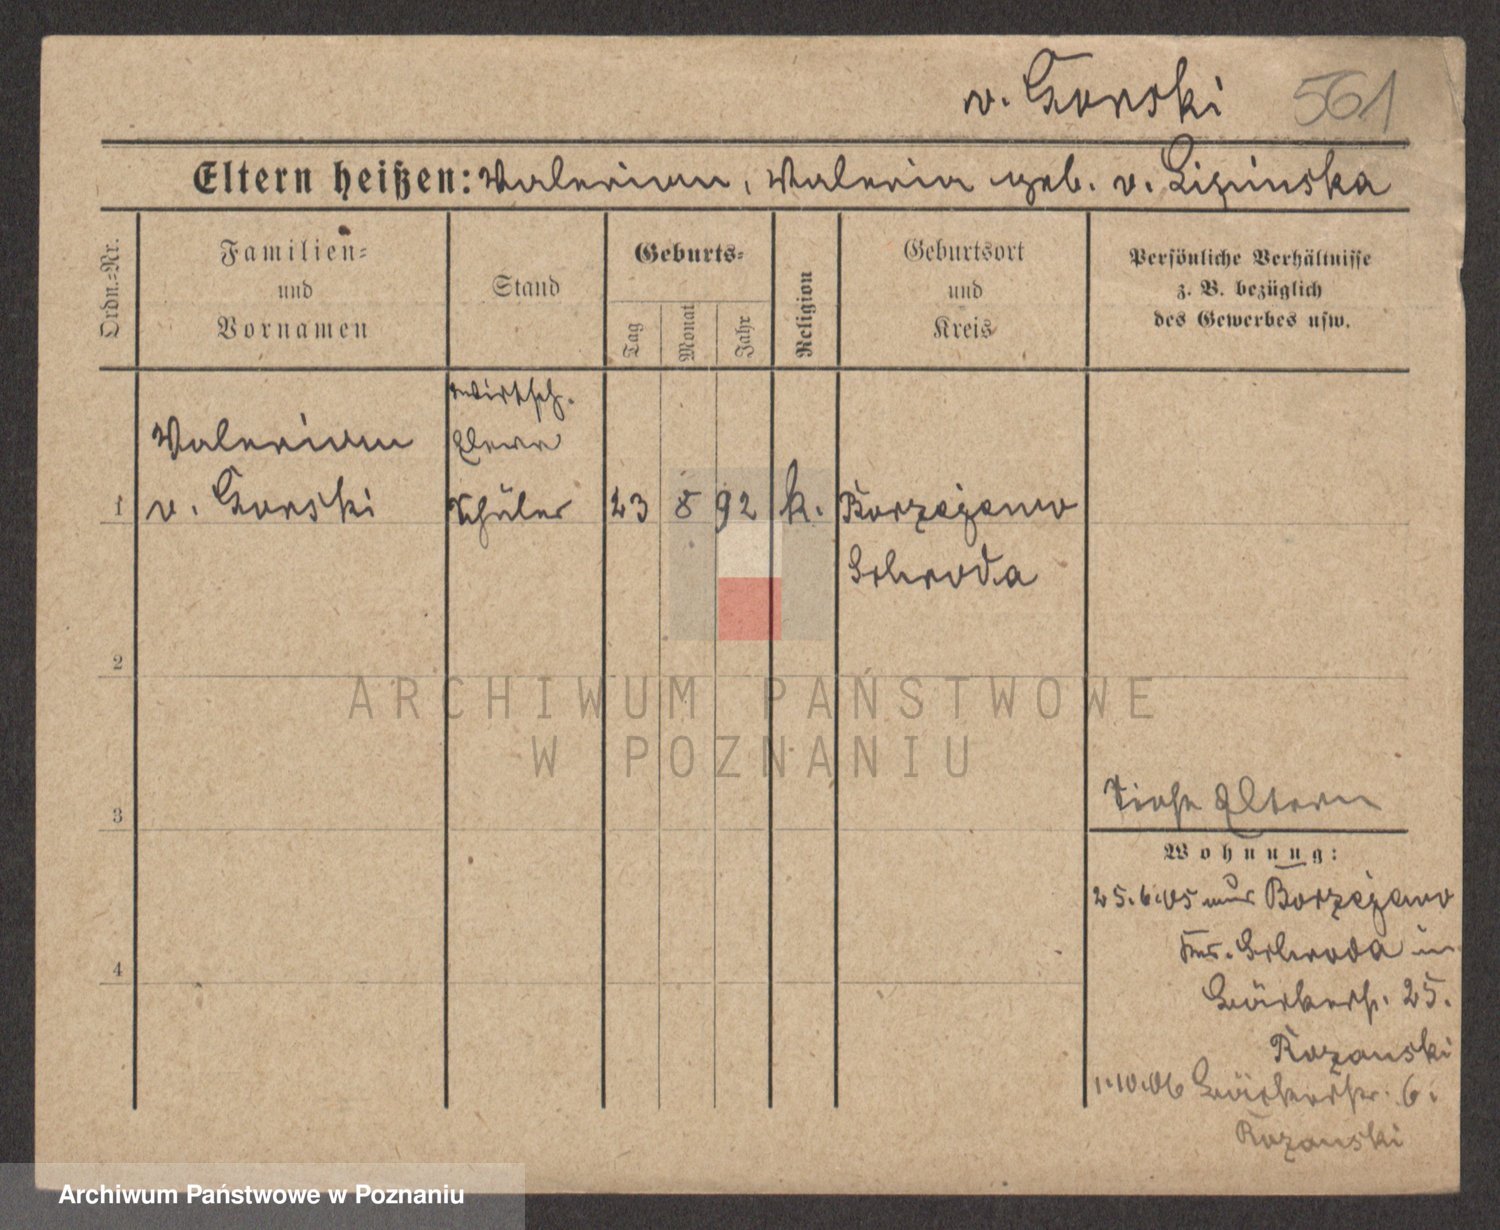 v. Gorski 561
Eltern heißen: Valerian, Valeria geb. v. Lipinska
Ordn.-Nr.
Familien-
und
Vornamen
Stand
Geburts-
Tag
Monat
Jahr
Religion
Geburtsort
und
Kreis
Persönliche Verhältnisse
z. B. bezüglich
des Gewerbes usw.
Wirtsch.
Valerian
Eleve
1 v. Gorski Schüler 23 8 92 k. Borzejewo
Schroda
2
ARCHIWUM PAŃSTWOWE
W POZNANIU
Siehe Eltern
3
Wohnung:
25.6.05 aus Borzejewo
Krs. Schroda in
4
Bäckerstr. 25.
Rozanski
1.10.06 Bäckerstr. 6.
Rozanski
Archiwum Państwowe w Poznaniu